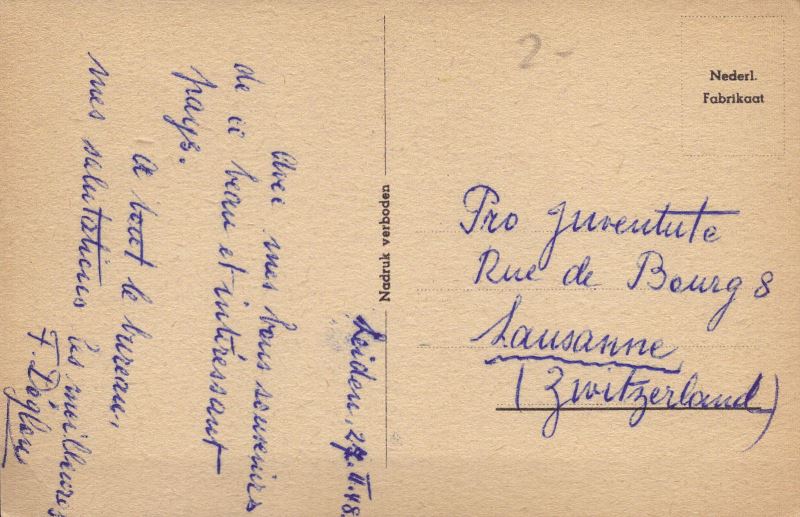 Leiden, 27.II.48.
Avec mes bons souvenirs
de ce beau et intéressant
pays.
A tout le bureau,
mes salutations les meilleures
F.
Nadruk verboden
2-
Nederl.
Fabrikaat
Pro Juventute
Rue de Bourg 8
Lausanne
(Zwitzerland)